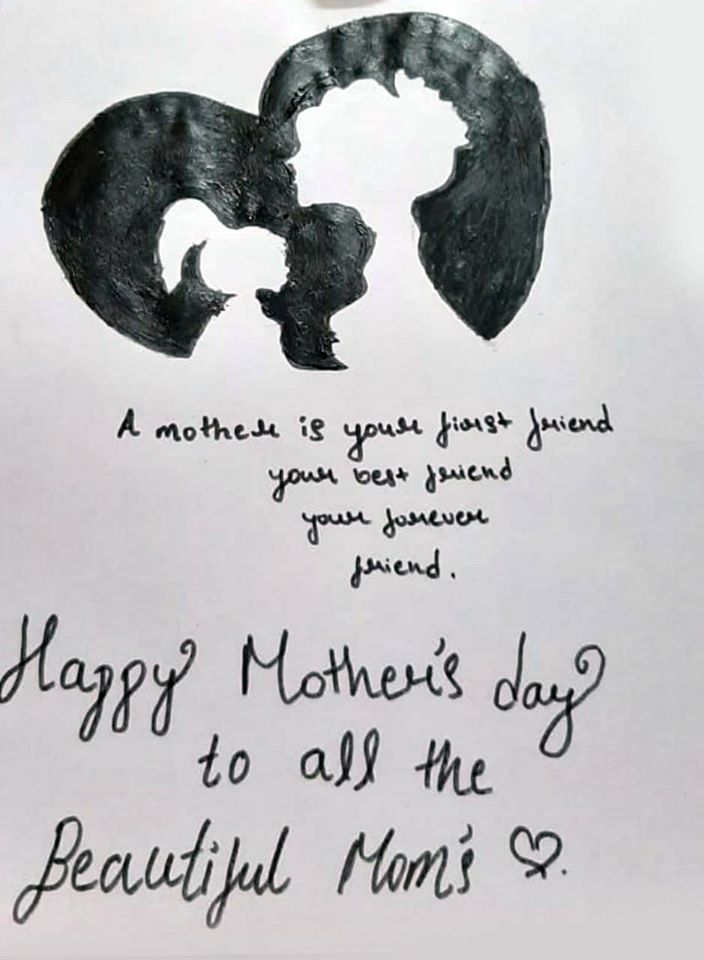 A mother is your first friend
your best friend
your forever
friend.
Happy Mother's day
to all the
Beautiful Mom's ♡.